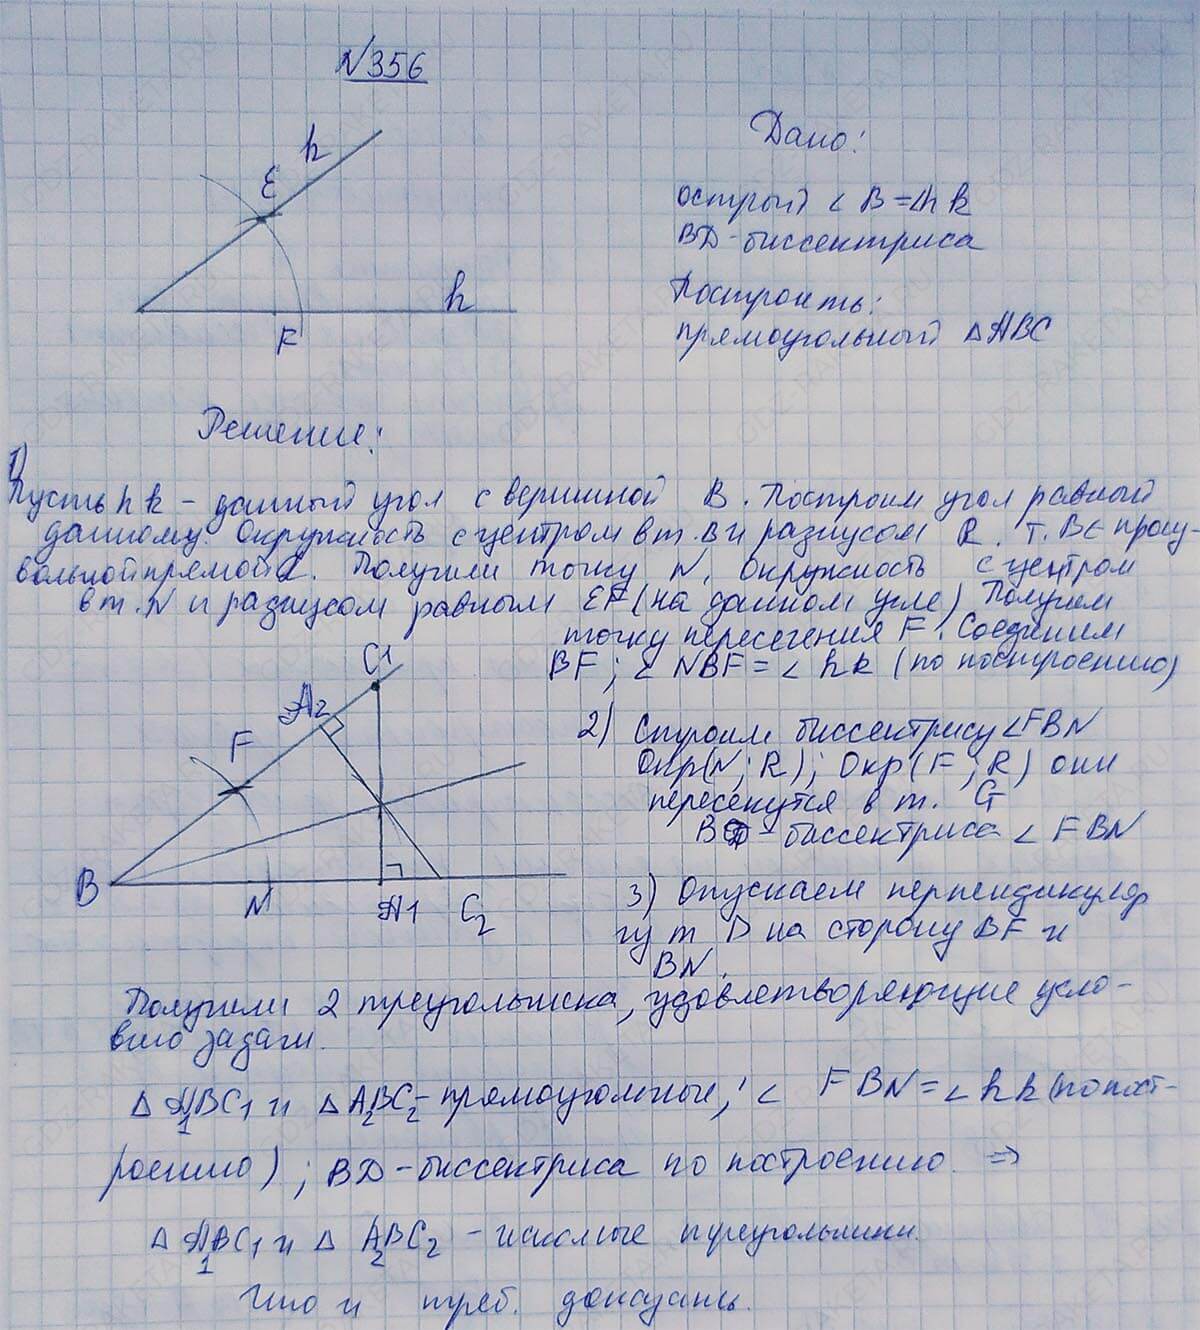 №356
k
E
h
F
Дано:
острый ∠B=∠hk
BD-биссектриса
Построить:
прямоугольный △ABC
Решение:
1)
Пусть hk - данный угол с вершиной B. Построим угол равный
данному. Окружность с центром в т.B и радиусом R. т.B∈ произ-
вольной прямой a. Получили точку N, окружность с центром
в т.N и радиусом равным EF (на данном угле) Получим
точку пересечения F. Соединим
BF; ∠NBF=∠hk (по построению)
C1
A2
F
B
N
A1
C2
2) Строим биссектрису ∠FBN
Окр(N;R); Окр(F;R) они
пересекутся в т. G
BD - биссектриса ∠FBN
3) Опускаем перпендикуляр
из т D на сторону BF и
BN.
Получили 2 треугольника, удовлетворяющие усло-
вию задачи.
△A1BC1 и △A2BC2 - прямоугольные; ∠FBN=∠hk (по пост-
роению); BD - биссектриса по построению. ⇒
△A1BC1 и △A2BC2 - искомые треугольники.
Что и треб. доказать.
GDZ-RAKETA.RU